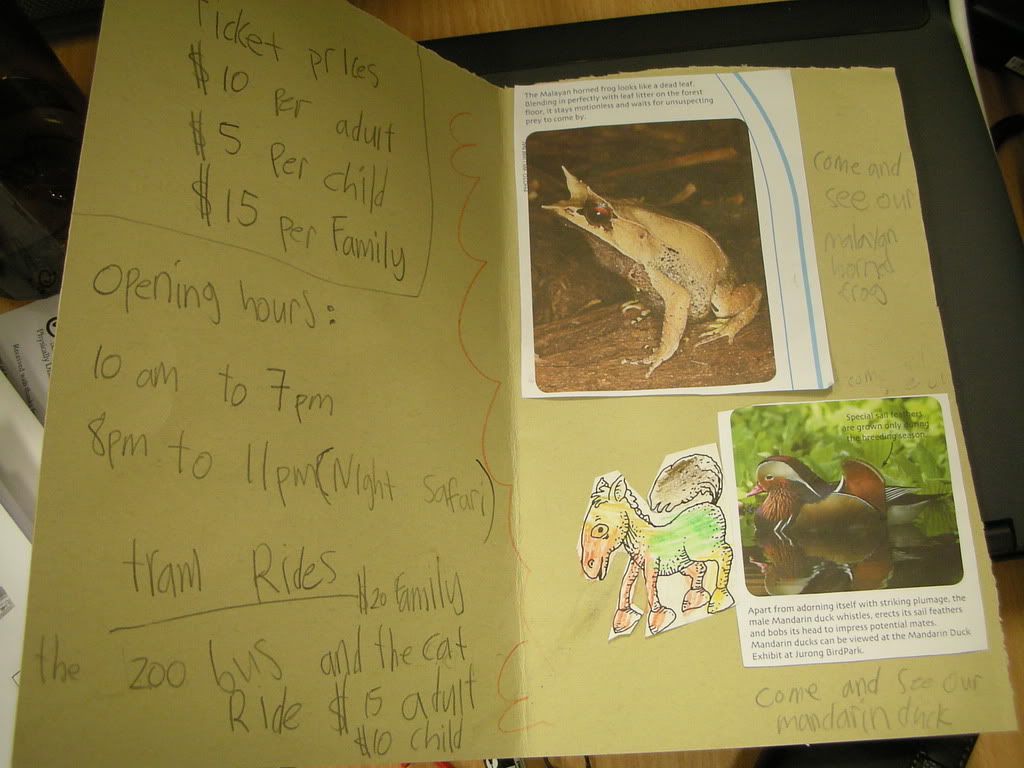 Ticket prices
$10 per adult
$5 per child
$15 per Family
Opening hours:
10 am to 7pm
8pm to 11pm (Night Safari)
tram Rides
$20 Family
the zoo bus and the cat
Ride $15 adult
$10 child
The Malayan horned frog looks like a dead leaf.
Blending in perfectly with leaf litter on the forest
floor, it stays motionless and waits for unsuspecting
prey to come by.
come and
see our
malayan
horned
frog
Special sail feathers
are grown only during
the breeding season.
Apart from adorning itself with striking plumage, the
male Mandarin duck whistles, erects its sail feathers
and bobs its head to impress potential mates.
Mandarin ducks can be viewed at the Mandarin Duck
Exhibit at Jurong BirdPark.
come and see our
mandarin duck